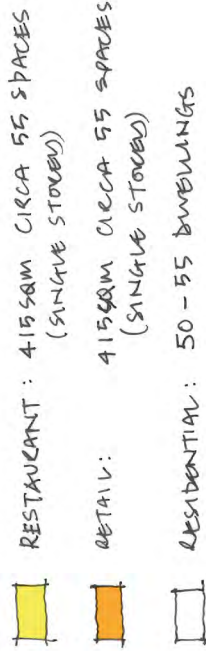 RESTAURANT: 415SQM CIRCA 55 SPACES
(SINGLE STOREY)
RETAIL: 415SQM CIRCA 55 SPACES
(SINGLE STOREY)
RESIDENTIAL: 50-55 DWELLINGS